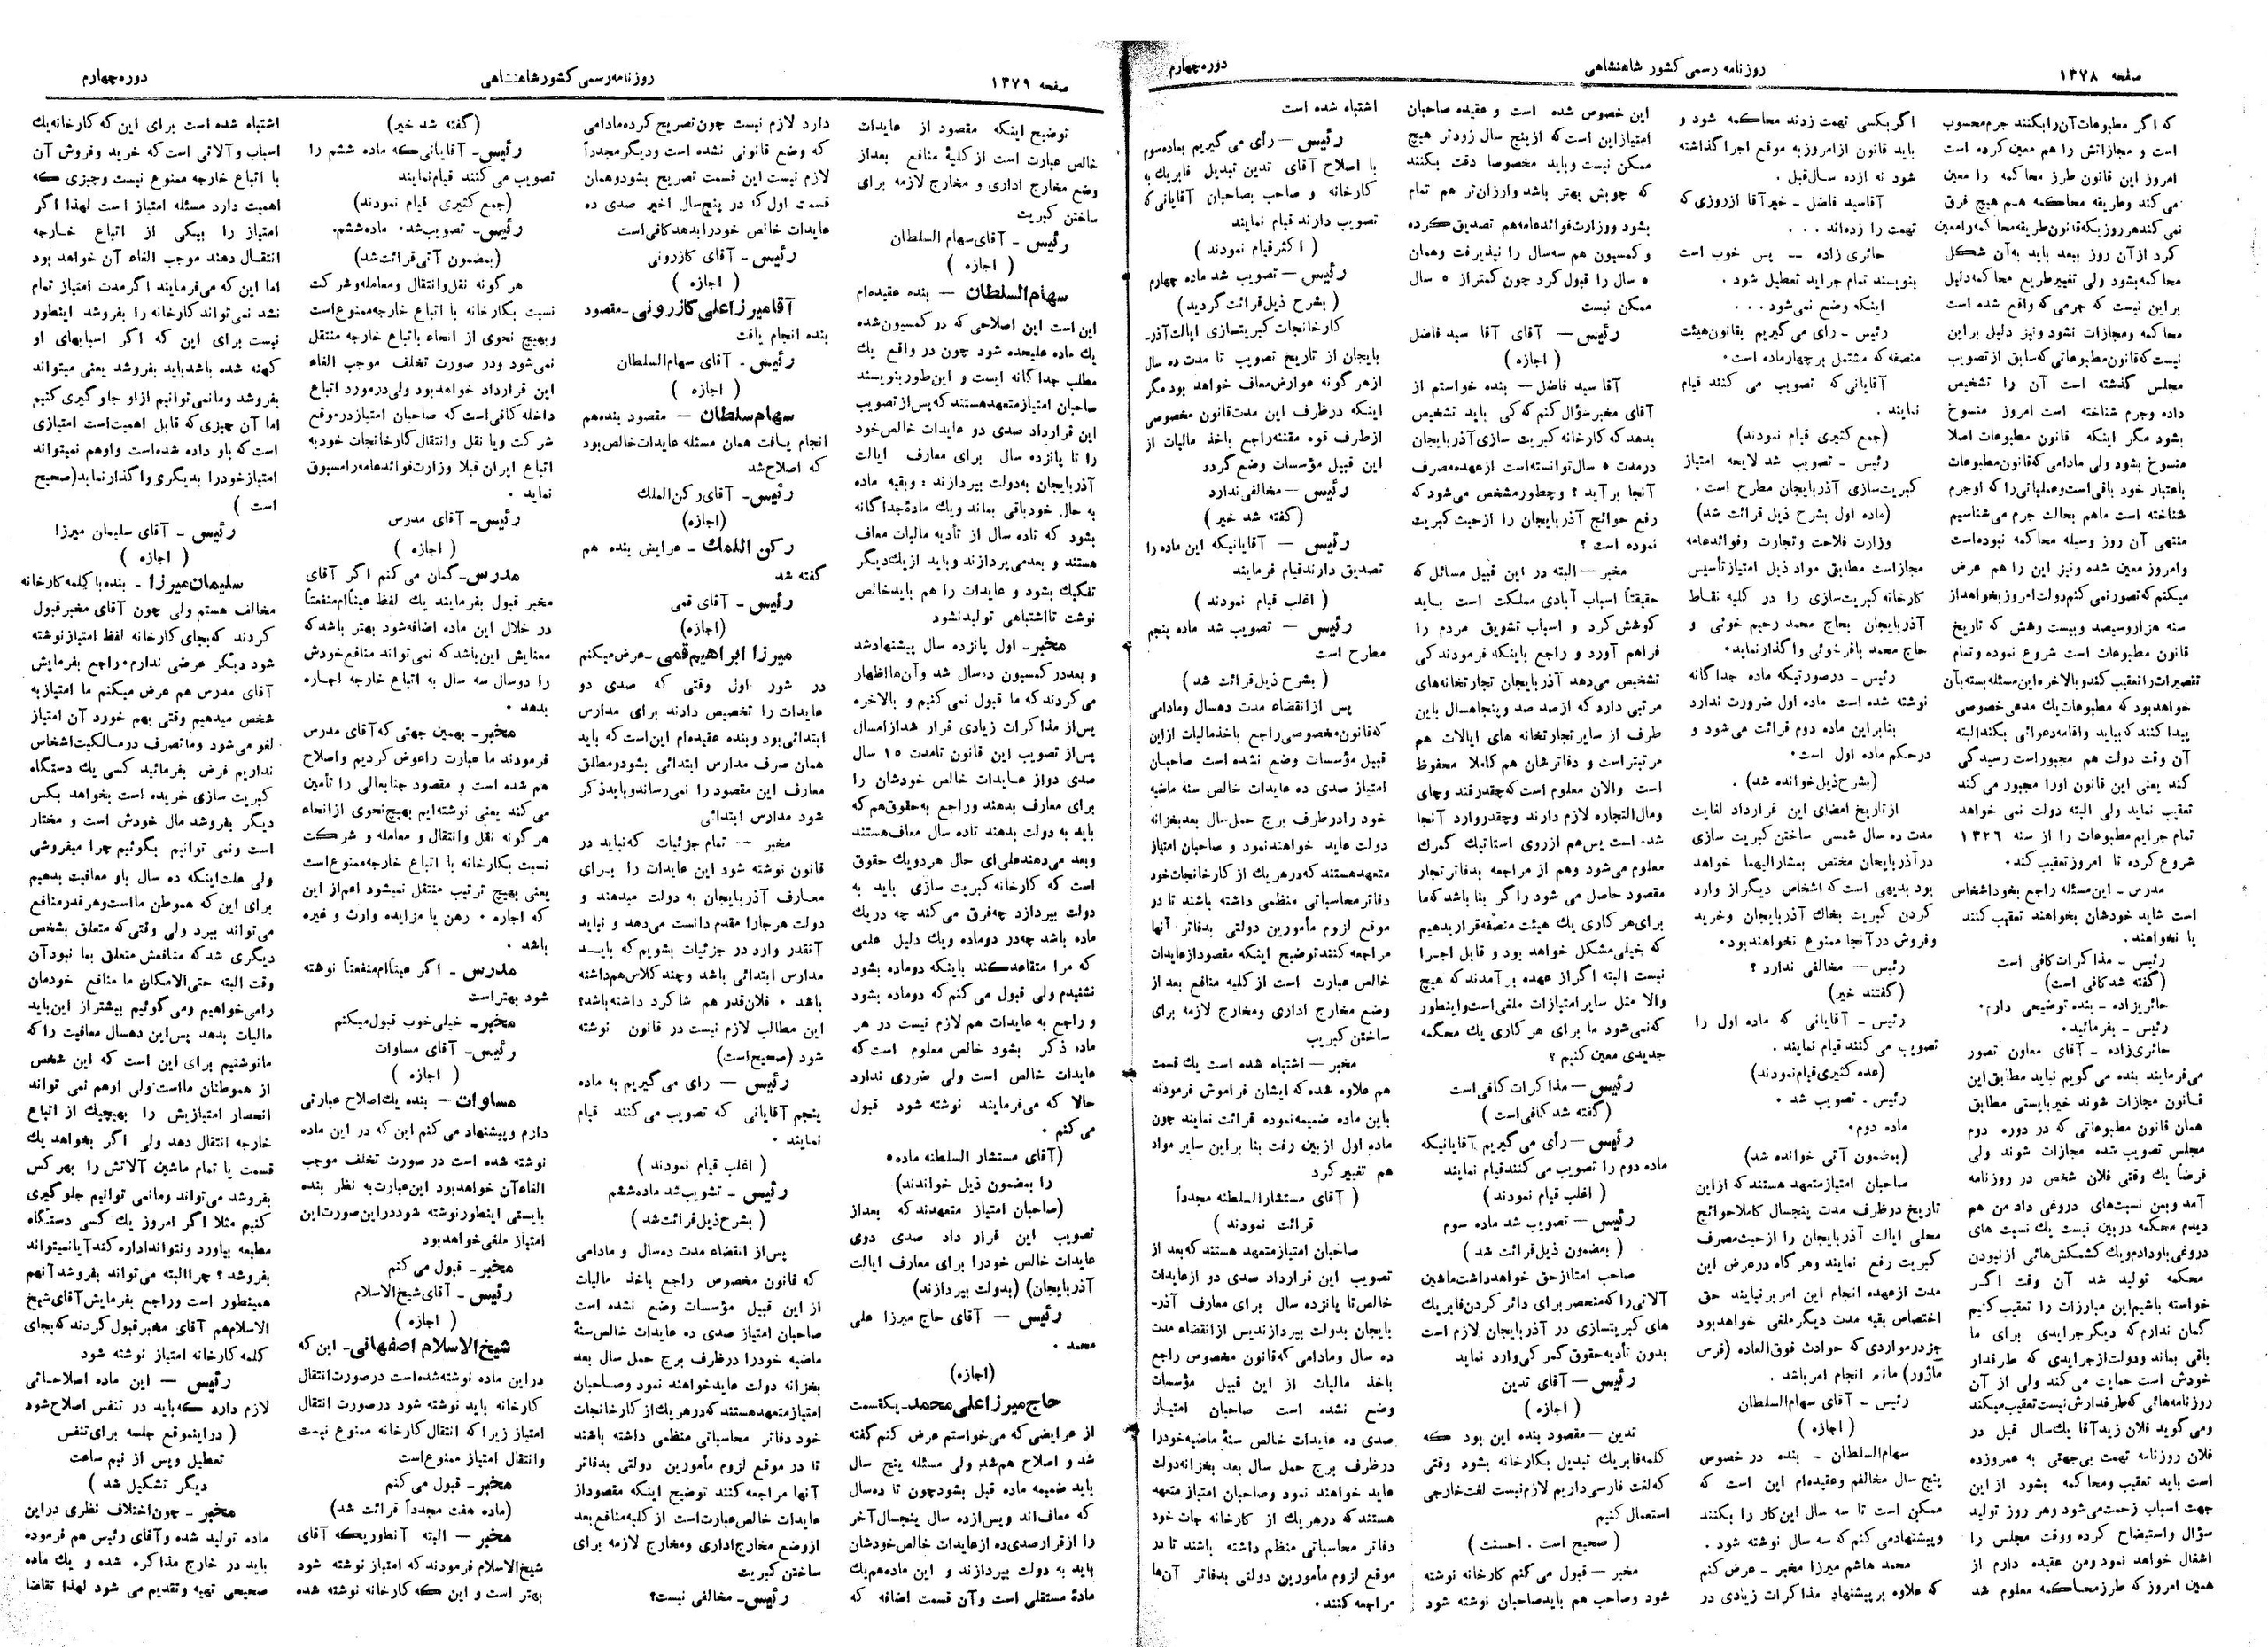 صفحه ۱۳۷۸
روزنامه رسمی کشور شاهنشاهی
دوره چهارم
که اگر مطبوعات آن را بکنند جرم محسوب
است و مجازاتش را هم معین کرده است
امروز این قانون طرز محاکمه را معین
می کند وطریقه محاکمه هم هیچ فرق
نمی کند هر روزیکه قانون طریقه محاکمه را معین
کرد از آن روز ببعد باید به آن شکل
محاکمه بشود ولی تغییر طریع محاکمه دلیل
بر این نیست که جرمی که واقع شده است
محاکمه ومجازات نشود ونیز دلیل بر این
نیست که قانون مطبوعاتی که سابق از تصویب
مجلس گذشته است آن را تشخیص
داده وجرم شناخته است امروز منسوخ
بشود مگر اینکه قانون مطبوعات اصلا
منسوخ بشود ولی مادامی که قانون مطبوعات
باعتبار خود باقی است وعملیاتی را که او جرم
شناخته است ماهم بحالت جرم می شناسیم
منتهی آن روز وسیله محاکمه نبوده است
وامروز معین شده ونیز این را هم عرض
میکنم که تصور نمی کنم دولت امروز بخواهد از
سنه هزار و سیصد و بیست وشش که تاریخ
قانون مطبوعات است شروع نموده وتمام
تقصیرات را تعقیب کند و بالاخره این مسئله بسته بآن
خواهد بود که مطبوعات یك مدعی خصوصی
پیدا کنند که بیاید واقامه دعوائی بکند البته
آن وقت دولت هم مجبور است رسیدگی
کند یعنی این قانون اورا مجبور می کند
تعقیب نماید ولی البته دولت نمی خواهد
تمام جرایم مطبوعات را از سنه ۱۳۲۶
شروع کرده تا امروز تعقیب کند.
مدرس ـ این مسئله راجع بخود اشخاص
است شاید خودشان بخواهند تعقیب کنند
یا نخواهند.
رئیس ـ مذاکرات کافی است
(گفته شد کافی است)
حائریزاده ـ بنده توضیحی دارم.
رئیس ـ بفرمائید.
حائری زاده ـ آقای معاون تصور
می فرمایند بنده می گویم نباید مطابق این
قانون مجازات شوند خیر بایستی مطابق
همان قانون مطبوعاتی که در دوره دوم
مجلس تصویب شده مجازات شوند ولی
فرضاً یك وقتی فلان شخص در روزنامه
آمد وبمن نسبت های دروغی داد من هم
دیدم محکمه در بین نیست یك نسبت های
دروغی باو دادم ویك کشمکش هائی از نبودن
محکمه تولید شد آن وقت اگر
خواسته باشیم این مبارزات را تعقیب کنیم
گمان ندارم که دیگر جرایدی برای ما
باقی بماند ودولت از جرایدی که طرفدار
خودش است حمایت می کند ولی از آن
روزنامه هائی که طرفدارش نیست تعقیب میکند
ومی گوید فلان زید آقا یك سال قبل در
فلان روزنامه تهمت بی جهتی به عمروزده
است باید تعقیب ومحاکمه بشود از این
جهت اسباب زحمت می شود وهر روز تولید
سؤال واستیضاح کرده ووقت مجلس را
اشغال خواهد نمود ومن عقیده دارم از
همین امروز که طرز محاکمه معلوم شد
اگر بکسی تهمت زدند محاکمه شود و
باید قانون از امروز به موقع اجرا گذاشته
شود نه ازده سال قبل.
آقاسید فاضل ـ خیر آقا از روزی که
تهمت را زده اند ...
حائری زاده ـــ پس خوب است
بنویسند تمام جراید تعطیل شود.
اینکه وضع نمی شود....
رئیس ـ رأی می گیریم بقانون هیئت
منصفه که مشتمل بر چهار ماده است.
آقایانی که تصویب می کنند قیام
نمایند.
(جمع کثیری قیام نمودند)
رئیس ـ تصویب شد لایحه امتیاز
کبریت سازی آذربایجان مطرح است.
(ماده اول بشرح ذیل قرائت شد)
وزارت فلاحت وتجارت وفوائد عامه
مجاز است مطابق مواد ذیل امتیاز تأسیس
کارخانه کبریت سازی را در کلیه نقاط
آذربایجان بحاج محمد رحیم خوئی و
حاج محمد باقر خوئی واگذار نماید.
رئیس ـ در صورتیکه ماده جداگانه
نوشته شده است ماده اول ضرورت ندارد
بنابراین ماده دوم قرائت می شود و
در حکم ماده اول است.
(بشرح ذیل خوانده شد).
از تاریخ امضای این قرارداد لغایت
مدت ده سال شمسی ساختن کبریت سازی
در آذربایجان مختص بمشارالیهما خواهد
بود بدیهی است که اشخاص دیگر از وارد
کردن کبریت بخاك آذربایجان وخرید
وفروش در آنجا ممنوع نخواهند بود.
رئیس ـ مخالفی ندارد ؟
(گفتند خیر)
رئیس ـ آقایانی که ماده اول را
تصویب می کنند قیام نمایند.
(عده کثیری قیام نمودند)
رئیس ـ تصویب شد.
ماده دوم.
(بمضمون آتی خوانده شد)
صاحبان امتیاز متعهد هستند که از این
تاریخ در ظرف مدت پنجسال کاملا حوائج
محلی ایالت آذربایجان را از حیث مصرف
کبریت رفع نمایند وهر گاه در عرض این
مدت از عهده انجام این امر بر نیایند حق
اختصاص بقیه مدت دیگر ملغی خواهد بود
جز در مواردی که حوادث فوق العاده (فرس
ماژور) مانع انجام امر باشد.
رئیس ـ آقای سهام السلطان
(اجازه)
سهام السلطان ـ بنده در خصوص
پنج سال مخالفم وعقیده ام این است که
ممکن است تا سه سال این کار را بکنند
وپیشنهاد می کنم که سه سال نوشته شود.
محمد هاشم میرزا مخبر ـ عرض کنم
که علاوه بر پیشنهاد مذاکرات زیادی در
این خصوص شده است و عقیده صاحبان
امتیاز این است که از پنج سال زودتر هیچ
ممکن نیست وباید مخصوصا دقت بکنند
که چوبش بهتر باشد وارزان تر هم تمام
بشود ووزارت فوائد عامه هم تصدیق کرده
وکمسیون هم سه سال را نپذیرفت وهمان
۵ سال را قبول کرد چون کمتر از ۵ سال
ممکن نیست
رئیس ـ آقای آقا سید فاضل
(اجازه)
آقا سید فاضل ـ بنده خواستم از
آقای مخبر سؤال کنم که کی باید تشخیص
بدهد که کارخانه کبریت سازی آذربایجان
در مدت ۵ سال توانسته است از عهده مصرف
آنجا بر آید ؟ وچطور مشخص می شود که
رفع حوائج آذربایجان را از حیث کبریت
نموده است ؟
مخبر ـ البته در این قبیل مسائل که
حقیقتاً اسباب آبادی مملکت است باید
کوشش کرد و اسباب تشویق مردم را
فراهم آورد و راجع باینکه فرمودند کی
تشخیص می دهد آذربایجان تجارتخانه های
مرتبی دارد که از صد صد وپنجاه سال باین
طرف از سایر تجارتخانه های ایالات هم
مرتبتر است و دفاترشان هم کاملا محفوظ
است والان معلوم است که چقدر قند وچای
ومال التجاره لازم دارند وچقدر وارد آنجا
شده است پس هم از روی استاتیك گمرك
معلوم می شود وهم از مراجعه بدفاتر تجار
مقصود حاصل می شود واگر بنا باشد که ما
برای هر کاری یك هیئت منصفه قرار بدهیم
که خیلی مشکل خواهد بود و قابل اجرا
نیست البته اگر از عهده بر آمدند که هیچ
والا مثل سایر امتیازات ملغی است واینطور
که نمی شود ما برای هر کاری یك محکمه
جدیدی معین کنیم ؟
رئیس ـ مذاکرات کافی است
(گفته شد کافی است)
رئیس ـ رأی می گیریم آقایانیکه
ماده دوم را تصویب می کنند قیام نمایند
(اغلب قیام نمودند)
رئیس ـ تصویب شد ماده سوم
(بمضمون ذیل قرائت شد)
صاحب امتیاز حق خواهد داشت ماشین
آلاتی را که منحصر برای دائر کردن فابریك
های کبریتسازی در آذربایجان لازم است
بدون تأدیه حقوق گمرکی وارد نماید
رئیس ـ آقای تدین
(اجازه)
تدین ـ مقصود بنده این بود که
کلمه فابریك تبدیل بکارخانه بشود وقتی
که لغت فارسی داریم لازم نیست لغت خارجی
استعمال کنیم
(صحیح است. احسنت)
مخبر ـ قبول می کنم کارخانه نوشته
شود وصاحب هم باید صاحبان نوشته شود
اشتباه شده است
رئیس ـ رأی می گیریم بماده سوم
با اصلاح آقای تدین تبدیل فابریك به
کارخانه و صاحب بصاحبان آقایانی که
تصویب دارند قیام نمایند
(اکثر قیام نمودند)
رئیس ـ تصویب شد ماده چهارم
(بشرح ذیل قرائت گردید)
کارخانجات کبریتسازی ایالت آذر-
بایجان از تاریخ تصویب تا مدت ده سال
از هر گونه عوارض معاف خواهد بود مگر
اینکه در ظرف این مدت قانون مخصوصی
از طرف قوه مقننه راجع باخذ مالیات از
این قبیل مؤسسات وضع گردد
رئیس ـ مخالفی ندارد
(گفته شد خیر)
رئیس ـ آقایانیکه این ماده را
تصدیق دارند قیام فرمایند
(اغلب قیام نمودند)
رئیس ـ تصویب شد ماده پنجم
مطرح است
(بشرح ذیل قرائت شد)
پس از انقضاء مدت دهسال ومادامی
که قانون مخصوصی راجع باخذ مالیات از این
قبیل مؤسسات وضع نشده است صاحبان
امتیاز صدی ده عایدات خالص سنۀ ماضیه
خود را در ظرف برج حمل سال بعد بخزانه
دولت عاید خواهند نمود و صاحبان امتیاز
متعهد هستند که در هر یك از کارخانجات خود
دفاتر محاسباتی منظمی داشته باشند تا در
موقع لزوم مأمورین دولتی بدفاتر آنها
مراجعه کنند توضیح اینکه مقصود از عایدات
خالص عبارت است از کلیه منافع بعد از
وضع مخارج اداری ومخارج لازمه برای
ساختن کبریب
مخبر ـ اشتباه شده است یك قسمت
هم علاوه شده که ایشان فراموش فرمودند
باین ماده ضمیمه نموده قرائت نمایند چون
ماده اول از بین رفت بنا بر این سایر مواد
هم تغییر کرد
(آقای مستشار السلطنه مجدداً
قرائت نمودند)
صاحبان امتیاز متعهد هستند که بعد از
تصویب این قرارداد صدی دو از عایدات
خالص تا پانزده سال برای معارف آذر-
بایجان بدولت بپردازند پس از انقضاء مدت
ده سال ومادامی که قانون مخصوص راجع
باخذ مالیات از این قبیل مؤسسات
وضع نشده است صاحبان امتیاز
صدی ده عایدات خالص سنۀ ماضیه خود را
در ظرف برج حمل سال بعد بخزانه دولت
عاید خواهند نمود وصاحبان امتیاز متعهد
هستند که در هر یك از کارخانه جات خود
دفاتر محاسباتی منظم داشته باشند تا در
موقع لزوم مأمورین دولتی بدفاتر آن ها
مراجعه کنند.
صفحه ۱۳۷۹
روزنامه رسمی کشور شاهنشاهی
دوره چهارم
توضیح اینکه مقصود از عایدات
خالص عبارت است از کلیۀ منافع بعد از
وضع مخارج اداری و مخارج لازمه برای
ساختن کبریت
رئیس ـ آقای سهام السلطان
(اجازه)
سهام السلطان ـ بنده عقیده ام
این است این اصلاحی که در کمسیون شده
یك ماده علیحده شود چون در واقع یك
مطلب جداگانه ایست و این طور بنویسند
صاحبان امتیاز متعهد هستند که پس از تصویب
این قرارداد صدی دو عایدات خالص خود
را تا پانزده سال برای معارف ایالت
آذربایجان به دولت بپردازند، وبقیه ماده
به حال خود باقی بماند ویك مادۀ جداگانه
بشود که تا ده سال از تأدیه مالیات معاف
هستند و بعد می پردازند و باید از یك دیگر
تفکیك بشود و عایدات را هم باید خالص
نوشت تا اشتباهی تولید نشود
مخبر ـ اول پانزده سال پیشنهاد شد
و بعد در کمسیون ده سال شد وآن ها اظهار
می کردند که ما قبول نمی کنیم و بالاخره
پس از مذاکرات زیادی قرار شد از امسال
پس از تصویب این قانون تا مدت ۱۵ سال
صدی دو از عایدات خالص خودشان را
برای معارف بدهند وراجع به حقوق هم که
باید به دولت بدهند تا ده سال معاف هستند
وبعد می دهند علی ای حال هر دو یك حقوق
است که کارخانه کبریت سازی باید به
دولت بپردازد چه فرق می کند چه در یك
ماده باشد چه در دو ماده ویك دلیل علمی
که مرا متقاعد کند باینکه دو ماده بشود
نشنیدم ولی قبول می کنم که دو ماده بشود
و راجع به عایدات هم لازم نیست در هر
ماده ذکر بشود خالص معلوم است که
عایدات خالص است ولی ضرری ندارد
حالا که می فرمایند نوشته شود قبول
می کنم.
(آقای مستشار السلطنه ماده ۵
را بمضمون ذیل خواندند)
(صاحبان امتیاز متعهدند که بعد از
تصویب این قرار داد صدی دوی
عایدات خالص خود را برای معارف ایالت
آذربایجان) (بدولت بپردازند)
رئیس ـ آقای حاج میرزا علی
محمد.
(اجازه)
حاج میرزا علی محمد ـ یکقسمت
از عرایضی که می خواستم عرض کنم گفته
شد و اصلاح هم شد ولی مسئله پنج سال
باید ضمیمه ماده قبل بشود چون تا ده سال
که معاف اند و پس از ده سال پنجسال آخر
را از قرار صدی ده از عایدات خالص خودشان
باید به دولت بپردازند و این ماده هم یك
مادۀ مستقلی است وآن قسمت اضافه که
دارد لازم نیست چون تصریح کرده مادامی
که وضع قانونی نشده است ودیگر مجدداً
لازم نیست این قسمت تصریح بشود وهمان
قسمت اول که در پنج سال اخیر صدی ده
عایدات خالص خود را بدهد کافی است
رئیس ـ آقای کازرونی
(اجازه)
آقامیرزا علی کازرونی ـ مقصود
بنده انجام یافت
رئیس ـ آقای سهام السلطان
(اجازه)
سهام سلطان ـ مقصود بنده هم
انجام یافت همان مسئله عایدات خالص بود
که اصلاح شد
رئیس ـ آقای رکن الملك
(اجازه)
رکن اللمك ـ عرایض بنده هم
گفته شد
رئیس ـ آقای قمی
(اجازه)
میرزا ابراهیم قمی ـ عرض میکنم
در شور اول وقتی که صدی دو
عایدات را تخصیص دادند برای مدارس
ابتدائی بود وبنده عقیده ام این است که باید
همان صرف مدارس ابتدائی بشود ومطلق
معارف این مقصود را نمی رساند وباید ذکر
شود مدارس ابتدائی
مخبر ـ تمام جزئیات که نباید در
قانون نوشته شود این عایدات را برای
معارف آذربایجان به دولت میدهند و
دولت هر جا را مقدم دانست می دهد و نباید
آنقدر وارد در جزئیات بشویم که باید
مدارس ابتدائی باشد وچند کلاس هم داشته
باشد. فلان قدر هم شاگرد داشته باشد؟
این مطالب لازم نیست در قانون نوشته
شود (صحیح است)
رئیس ـ رای می گیریم به ماده
پنجم آقایانی که تصویب می کنند قیام
نمایند.
(اغلب قیام نمودند)
رئیس ـ تشویب شد ماده ششم
(بشرح ذیل قرائت شد)
پس از انقضاء مدت ده سال و مادامی
که قانون مخصوص راجع باخذ مالیات
از این قبیل مؤسسات وضع نشده است
صاحبان امتیاز صدی ده عایدات خالص سنۀ
ماضیه خود را در ظرف برج حمل سال بعد
بخزانه دولت عاید خواهند نمود وصاحبان
امتیاز متعهد هستند که در هر یك از کارخانجات
خود دفاتر محاسباتی منظمی داشته باشند
تا در موقع لزوم مأمورین دولتی بدفاتر
آنها مراجعه کنند توضیح اینکه مقصود از
عایدات خالص عبارت است از کلیه منافع بعد
از وضع مخارج اداری ومخارج لازمه برای
ساختن کبریت
رئیس ـ مخالفی نیست؟
(گفته شد خیر)
رئیس ـ آقایانی که ماده ششم را
تصویب می کنند قیام نمایند
(جمع کثیری قیام نمودند)
رئیس ـ تصویب شد. ماده ششم.
(بمضمون آتی قرائت شد)
هر گونه نقل وانتقال ومعامله وشرکت
نسبت بکارخانه با اتباع خارجه ممنوع است
وبهیچ نحوی از انحاء باتباع خارجه منتقل
نمی شود ودر صورت تخلف موجب الغاء
این قرارداد خواهد بود ولی در مورد اتباع
داخله کافی است که صاحبان امتیاز در موقع
شرکت ویا نقل وانتقال کارخانجات خود به
اتباع ایران قبلا وزارت فوائد عامه را مسبوق
نماید.
رئیس ـ آقای مدرس
(اجازه)
مدرس ـ گمان می کنم اگر آقای
مخبر قبول بفرمایند یك لفظ عیناً ام منفعتاً
در خلال این ماده اضافه شود بهتر باشد که
معنایش این باشد که نمی تواند منافع خودش
را دو سال سه سال به اتباع خارجه اجاره
بدهد.
مخبر ـ بهمین جهتی که آقای مدرس
فرمودند ما عبارت را عوض کردیم واصلاح
هم شده است و مقصود جنابعالی را تأمین
می کند یعنی نوشته ایم بهیچ نحوی از انحاء
هر گونه نقل وانتقال و معامله و شرکت
نسبت بکارخانه با اتباع خارجه ممنوع است
یعنی بهیچ ترتیب منتقل نمیشود اعم از این
که اجاره. رهن یا مزایده وارث و غیره
باشد.
مدرس ـ اگر عیناً ام منفعتاً نوشته
شود بهتر است
مخبر ـ خیلی خوب قبول میکنم
رئیس ـ آقای مساوات
(اجازه)
مساوات ـ بنده یك اصلاح عبارتی
دارم وپیشنهاد می کنم این که در این ماده
نوشته شده است در صورت تخلف موجب
الغاء آن خواهد بود این عبارت به نظر بنده
بایستی اینطور نوشته شود در این صورت این
امتیاز ملغی خواهد بود
مخبر ـ قبول می کنم
رئیس ـ آقای شیخ الاسلام
(اجازه)
شیخ الاسلام اصفهانی ـ این که
در این ماده نوشته شده است در صورت انتقال
کارخانه باید نوشته شود در صورت انتقال
امتیاز زیرا که انتقال کارخانه ممنوع نیست
وانتقال امتیاز ممنوع است
مخبر ـ قبول می کنم
(ماده هفت مجدداً قرائت شد)
مخبر ـ البته آنطوریکه آقای
شیخ الاسلام فرمودند که امتیاز نوشته شود
بهتر است و این که کارخانه نوشته شده
اشتباه شده است برای این که کارخانه یك
اسباب وآلاتی است که خرید وفروش آن
با اتباع خارجه ممنوع نیست وچیزی که
اهمیت دارد مسئله امتیاز است لهذا اگر
امتیاز را بیکی از اتباع خارجه
انتقال دهند موجب الغاء آن خواهد بود
اما این که می فرمایند اگر مدت امتیاز تمام
نشد نمی تواند کارخانه را بفروشد اینطور
نیست برای این که اگر اسبابهای او
کهنه شده باشد باید بفروشد یعنی میتواند
بفروشد وما نمی توانیم از او جلوگیری کنیم
اما آن چیزی که قابل اهمیت است امتیازی
است که باو داده شده است واوهم نمیتواند
امتیاز خود را بدیگری واگذار نماید (صحیح
است)
رئیس ـ آقای سلیمان میرزا
(اجازه)
سلیمان میرزا ـ بنده با کلمه کارخانه
مخالف هستم ولی چون آقای مخبر قبول
کردند که بجای کارخانه لفظ امتیاز نوشته
شود دیگر عرضی ندارم. راجع بفرمایش
آقای مدرس هم عرض میکنم ما امتیاز به
شخص میدهیم وقتی بهم خورد آن امتیاز
لغو می شود وما تصرف در مالکیت اشخاص
نداریم فرض بفرمائید کسی یك دستگاه
کبریت سازی خریده است بخواهد بکس
دیگر بفروشد مال خودش است و مختار
است ونمی توانیم بگوئیم چرا میفروشی
ولی علت اینکه ده سال باو معافیت بدهیم
برای این که هموطن ما است وهر قدر منافع
می تواند ببرد ولی وقتی که متعلق بشخص
دیگری شد که منافعش متعلق بما نبود آن
وقت البته حتی الامکان ما منافع خودمان
را می خواهیم ومی گوئیم بیشتر از این باید
مالیات بدهد پس این دهسال معافیت را که
ما نوشتیم برای این است که این شخص
از هموطنان ما است ولی اوهم نمی تواند
انحصار امتیازیش را بهیچیك از اتباع
خارجه انتقال دهد ولی اگر بخواهد یك
قسمت یا تمام ماشین آلاتش را بهر کس
بفروشد می تواند ومانمی توانیم جلوگیری
کنیم مثلا اگر امروز یك کسی دستگاه
مطبعه بیاورد ونتواند اداره کند آیا نمیتواند
بفروشد ؟ چرا البته می تواند بفروشد آنهم
همینطور است وراجع بفرمایش آقای شیخ
الاسلام هم آقای مخبر قبول کردند که بجای
کلمه کارخانه امتیاز نوشته شود
رئیس ـ این ماده اصلاحاتی
لازم دارد که باید در تنفس اصلاح شود
(در اینموقع جلسه برای تنفس
تعطیل وپس از نیم ساعت
دیگر تشکیل شد)
مخبر ـ چون اختلاف نظری در این
ماده تولید شده وآقای رئیس هم فرموده
باید در خارج مذاکره شده و یك ماده
صحیحی تهیه وتقدیم می شود لهذا تقاضا